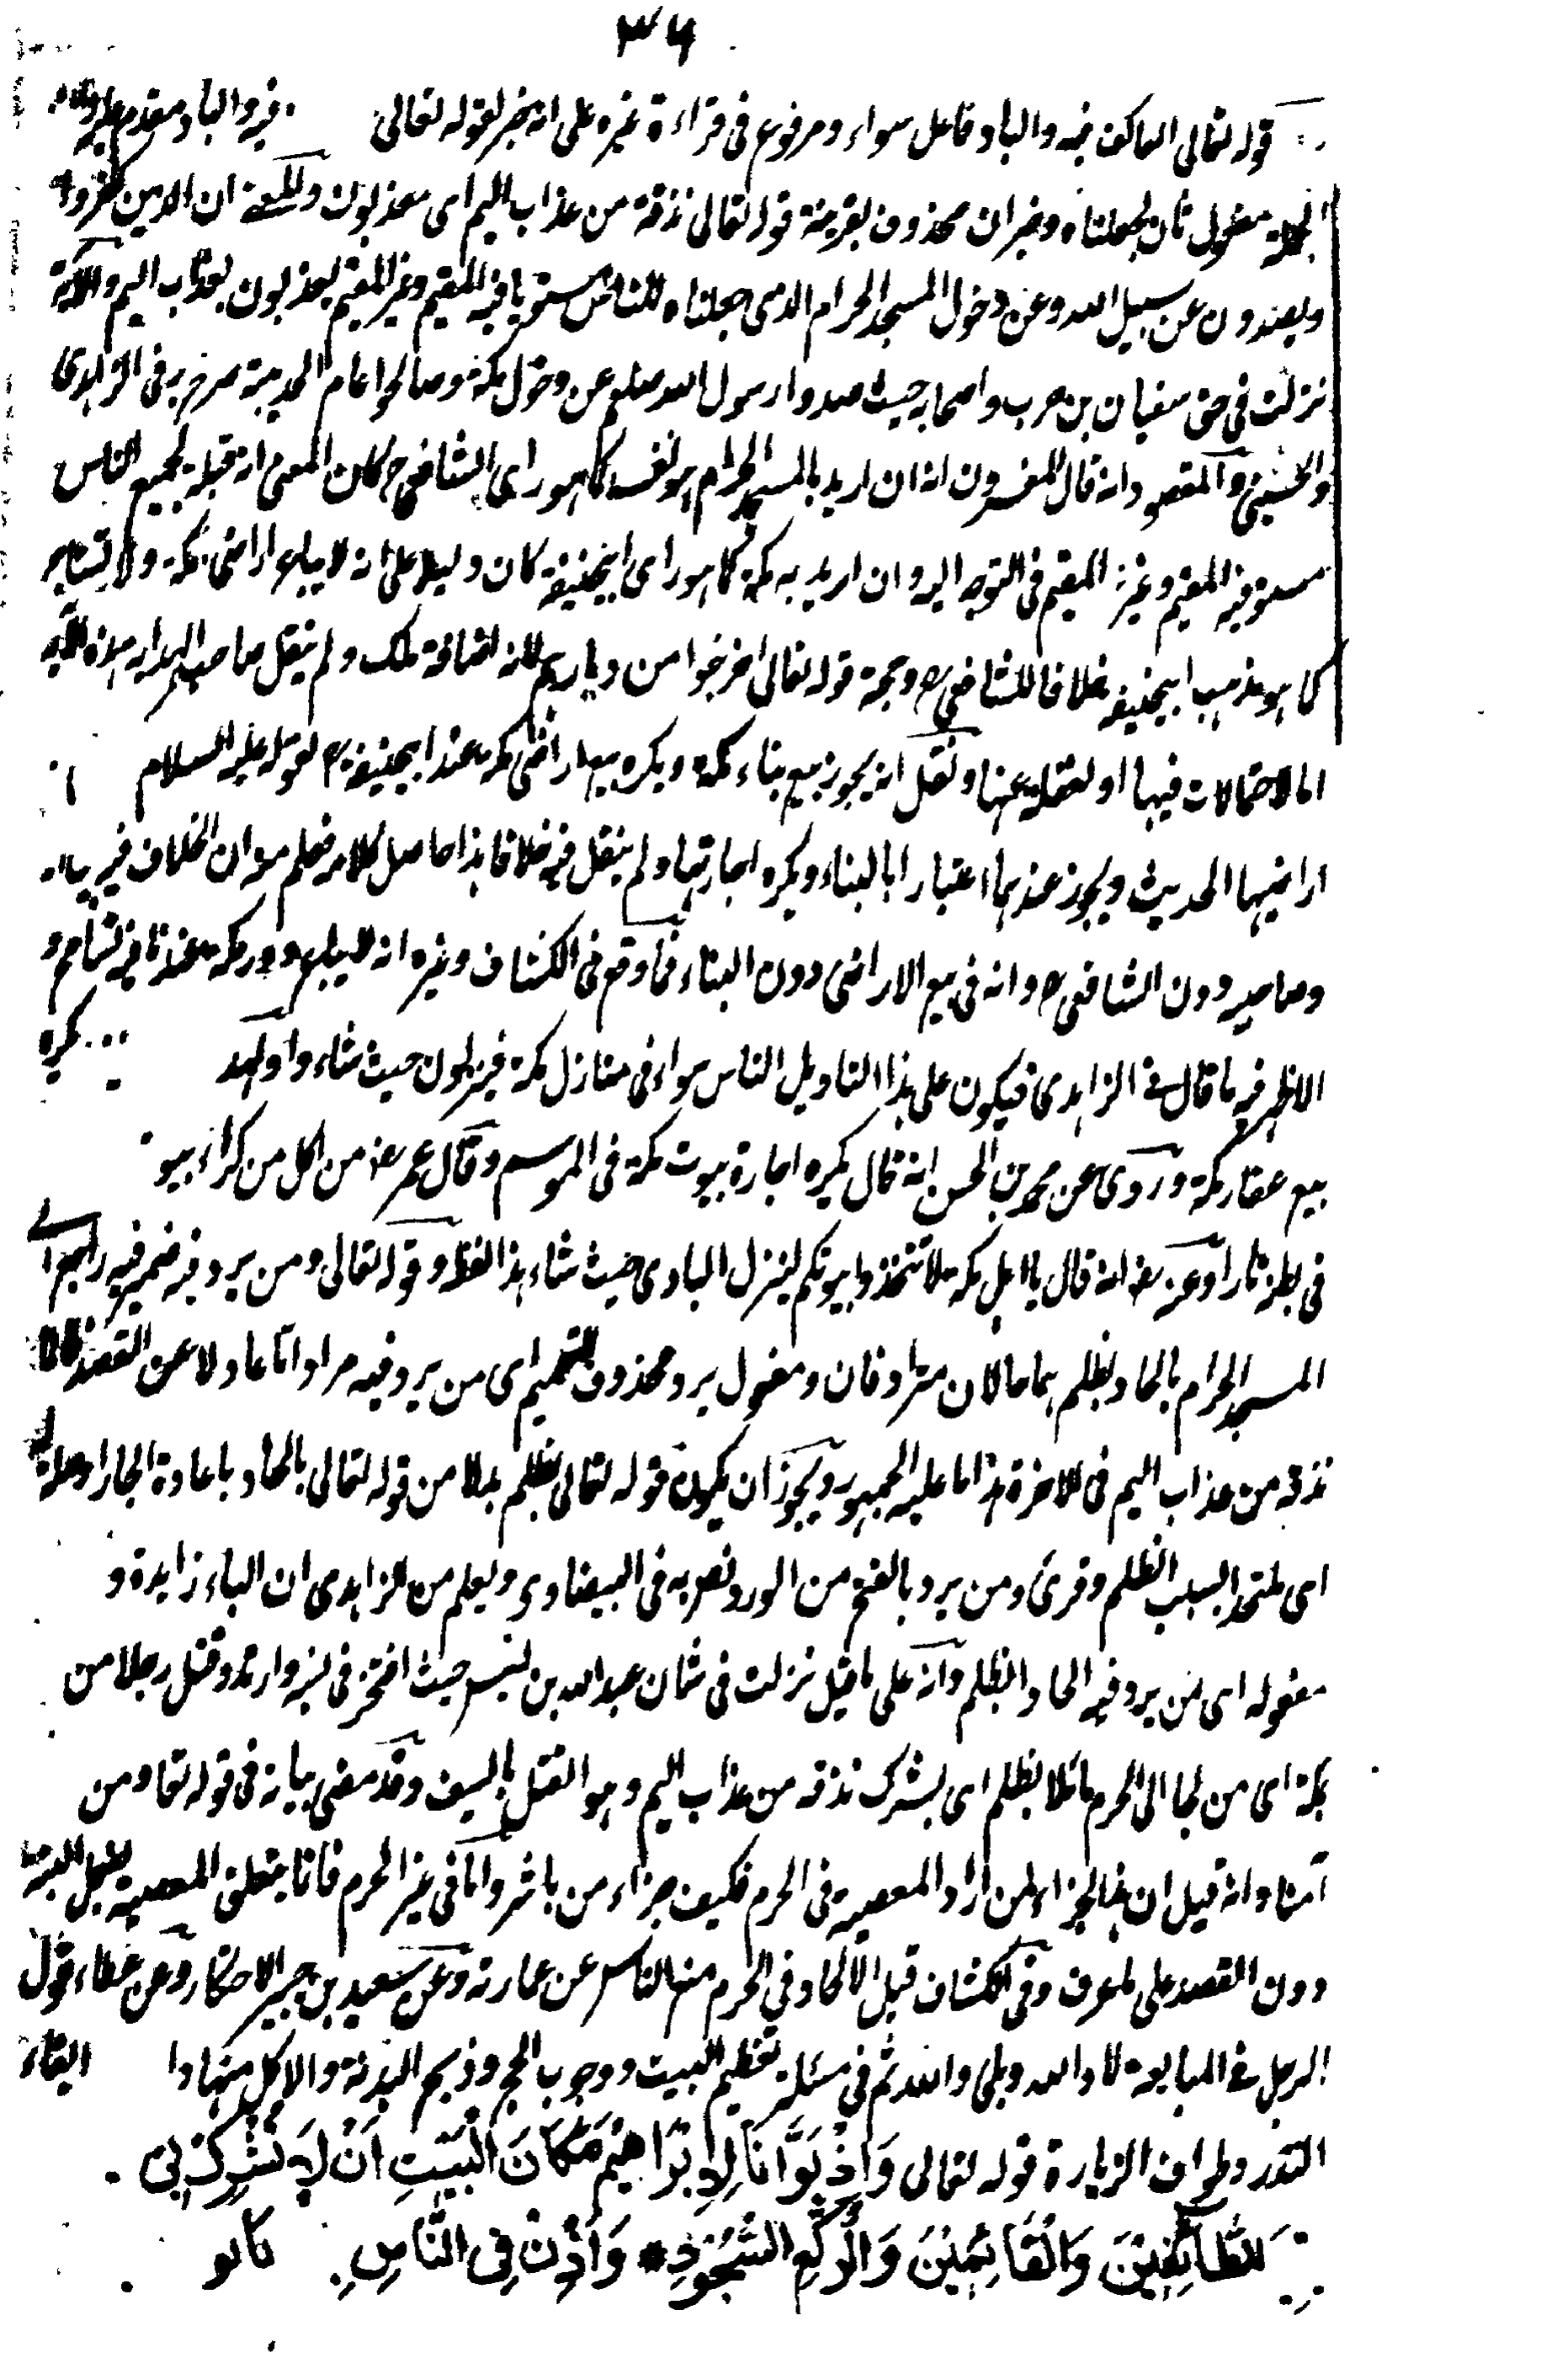 ٣٦
قوله تعالى العاكف فيه والباد فاعل سواء ومرفوع فى قراءة غيره على انه خبر لقوله تعالى فيه والباد مقدم عليه
الجملة مفعول ثان لجعلناه وخبر ان محذوف بقرينة قوله تعالى نذقه من عذاب اليم اى معذبون والمعنى ان الذين كفروا
ويصدون عن سبيل الله وعن دخول المسجد الحرام الذى جعلناه للناس مستويا فيه المقيم وغير المقيم يعذبون بعذاب اليم والآية
نزلت فى حق سفيان بن حرب واصحابه حيث صدوا رسول الله صلعم عن دخول مكة وصالحوا عام الحديبية صرح به فى الزاهدى
والحسينى والمقصود انه قال المفسرون انه ان اريد بالمسجد الحرام هو نفسه كما هو راى الشافعى رح كان المعنى انه قبلة لجميع الناس
مستو فيه المقيم وغير المقيم فى التوجه اليه وان اريد به مكة كما هو راى ابيحنيفة كان دليلا على انه لا يباع اراضى مكة ولا تستاجر
كما هو مذهب ابيحنيفة خلافا للشافعى رح وحجته قوله تعالى اخرجوا من ديارهم لانه اضافة ملك ولم ينقل صاحب الهداية هذه الآية
اما لاحتمالات فيها او لغفلته عنها ونقل انه يجوز بيع بناء مكة ويكره بيع اراضى مكة عند ابيحنيفة رح لقوله عليه السلام
اراضيها الحديث ويجوز عندهما اعتبارا بالبناء ويكره اجارتها ولم ينقل فيه خلافا هذا حاصل كلامه فعلم منه ان الخلاف فيه
وصاحبيه دون الشافعى رح وانه فى بيع الاراضى دون البناء فما وقع فى الكشاف وغيره انه لا يباع دور مكة عندنا فيه تسامح و
الاظهر فيه ما قال فى الزاهدى فيكون على هذا التاويل الناس سواء فى منازل مكة فينزلون حيث شاءوا ولهذا يكره
بيع عقار مكة وروى عن محمد بن الحسن انه قال يكره اجارة بيوت مكة فى الموسم وقال عمر رضه من اكل من كراء بيو
فى بطنه نارا وعنه رضه انه قال يا اهل مكة لا تتخذوا بيوتكم لينزل البادى حيث شاء هذا لفظه وقوله تعالى ومن يرد فيه ضمير فيه راجع الى
المسجد الحرام بالحاد بظلم هما حالان مترادفان ومفعول يرد محذوف للتعميم اى من يرد فيه مرادا ما عادلا عن القصد ظالما
نذقه من عذاب اليم فى الآخرة هذا ما عليه الجمهور ويجوز ان يكون قوله تعالى بظلم بدلا من قوله تعالى بالحاد باعادة الجار او صلة له
اى ملتحدا بسبب الظلم وقرئ ومن يرد بالفتح من الورود نص به فى البيضاوى ويعلم من الزاهدى ان الباء زايدة و
مفعوله اى من يرد فيه الحاد الظلم وانه على ما قيل نزلت فى شان عبد الله بن حيث افتخر فى وارتد وقتل رجلا من
مكة اى من لجا الى الحرم مائلا بظلم اى بشرك نذقه من عذاب اليم وهو القتل بالسيف وقد مضى بيانه فى قوله تعا ومن
آمنا وانه قيل ان هذا لجزاء لمن اراد المعصية فى الحرم فكيف جزاء من باشر واما فى غير الحرم فانما يتعلق المعصية بعمل البتة
دون القصد على ما عرف وفى الكشاف قيل الالحاد فى الحرم منع الناس عن عمارته وعن سعيد بن جبير الاحتكار وعن عطاء قول
الرجل فى المبايعة لا والله وبلى والله ثم فى مسئلة تعظيم البيت ووجوب الحج وذبح البدنة والاكل منها وا ايفاء
النذر وطواف الزيارة قوله تعالى وَاِذْ بَوَّاْنَا لِاِبْرَاهِيْمَ مَكَانَ الْبَيْتِ اَنْ لَا تُشْرِكْ بِى
لِلطَّائِفِيْنَ وَالْقَائِمِيْنَ وَالرُّكَّعِ السُّجُوْدِ * وَاَذِّنْ فِى النَّاسِ